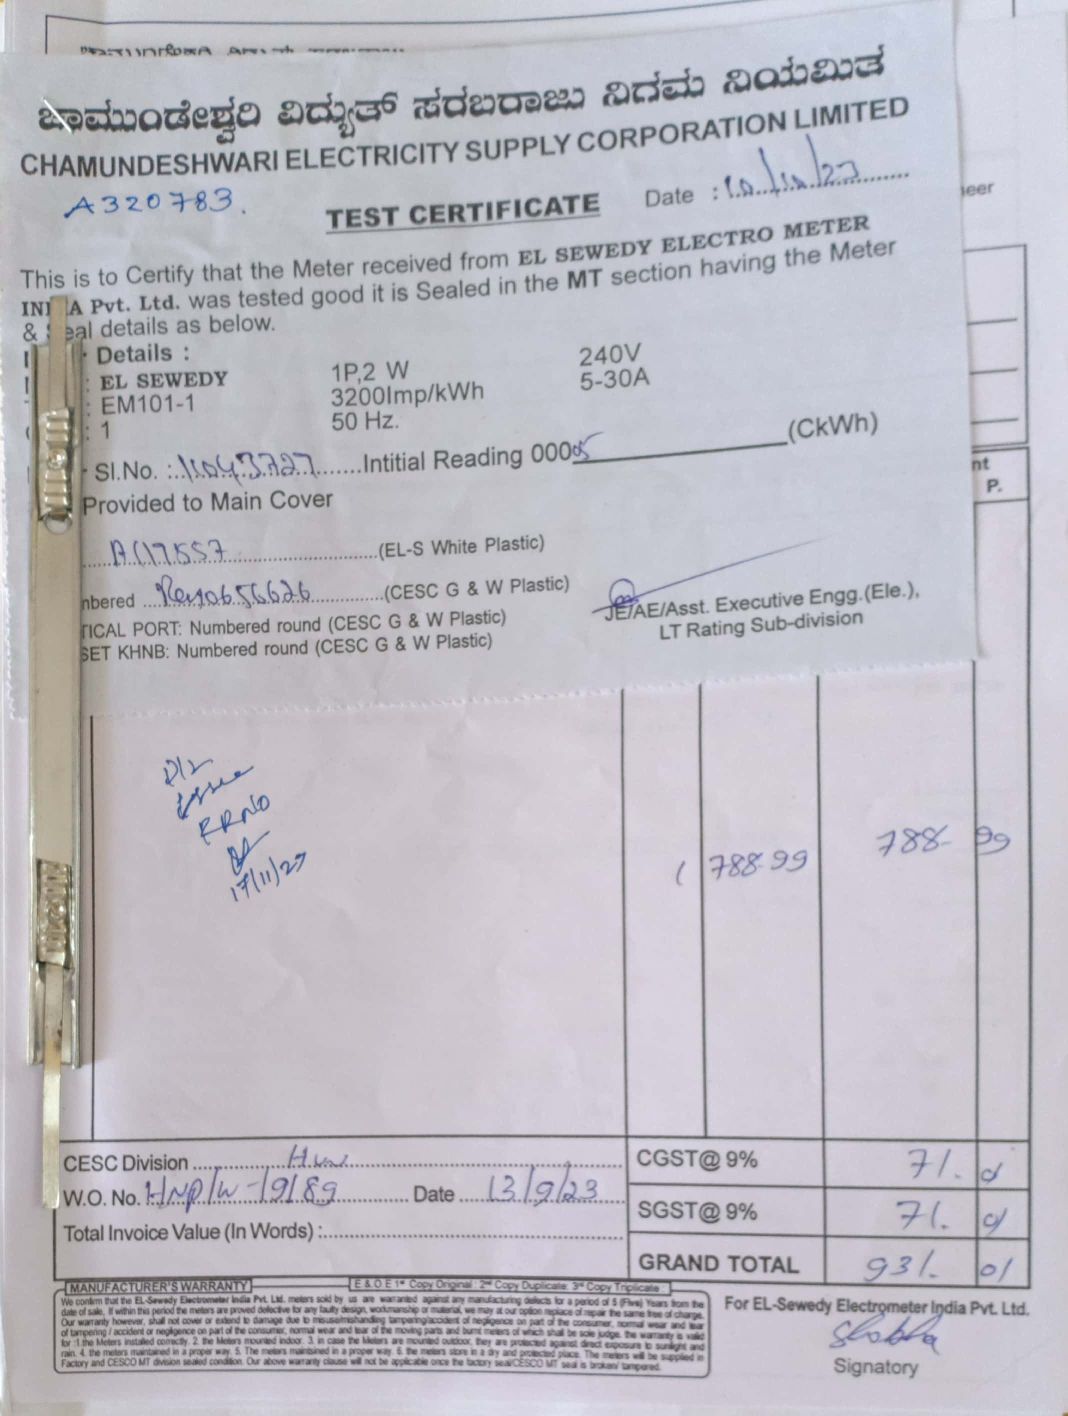 ಚಾಮುಂಡೇಶ್ವರಿ ವಿದ್ಯುತ್ ಸರಬರಾಜು ನಿಗಮ ನಿಯಮಿತ
CHAMUNDESHWARI ELECTRICITY SUPPLY CORPORATION LIMITED
A320783.
TEST CERTIFICATE
Date : 10/10/23
eer
This is to Certify that the Meter received from EL SEWEDY ELECTRO METER
INDIA Pvt. Ltd. was tested good it is Sealed in the MT section having the Meter
& Seal details as below.
Details :
: EL SEWEDY 1P,2 W 240V
: EM101-1 3200Imp/kWh 5-30A
: 1 50 Hz.
Sl.No. : 11043727 Intitial Reading 00005 (CkWh)
nt
P.
Provided to Main Cover
AC17557 (EL-S White Plastic)
nbered (CESC G & W Plastic)
TICAL PORT: Numbered round (CESC G & W Plastic)
SET KHNB: Numbered round (CESC G & W Plastic)
JE/AE/Asst. Executive Engg.(Ele.),
LT Rating Sub-division
RRNO
17/11/23
1 788-99 788- 99
CESC Division CGST@ 9% 71.
W.O. No. HNP/W-19/89 Date 13/9/23
SGST@ 9% 71.
Total Invoice Value (In Words) :
GRAND TOTAL 931. 01
MANUFACTURER'S WARRANTY
E & O E 1st Copy Original : 2nd Copy Duplicate: 3rd Copy Triplicate :
We confirm that the EL-Sewedy Electrometer India Pvt. Ltd. meters sold by us are warranted against any manufacturing defects for a period of 5 (Five) Years from the
date of sale. If within this period the meters are proved defective for any faulty design, workmanship or material, we may at our option replace of repair the same free of charge.
Our warranty however, shall not cover or extend to damage due to misuse/mishandling tampering/accident of negligence on part of the consumer, normal wear and tear
of tampering / accident or negligence on part of the consumer, normal wear and tear of the moving parts and burnt meters of which shall be sole judge. the warranty is valid
for :1.the Meters installed correctly. 2. the Meters mounted indoor. 3. in case the Meters are mounted outdoor, they are protected against direct exposure to sunlight and
rain. 4. the meters maintained in a proper way. 5. The meters maintained in a proper way. 6. the meters store in a dry and protected place. The meters will be supplied in
Factory and CESCO MT division sealed condition. Our above warranty clause will not be applicable once the factory seal/CESCO MT seal is broken/ tampered.
For EL-Sewedy Electrometer India Pvt. Ltd.
Shobha
Signatory